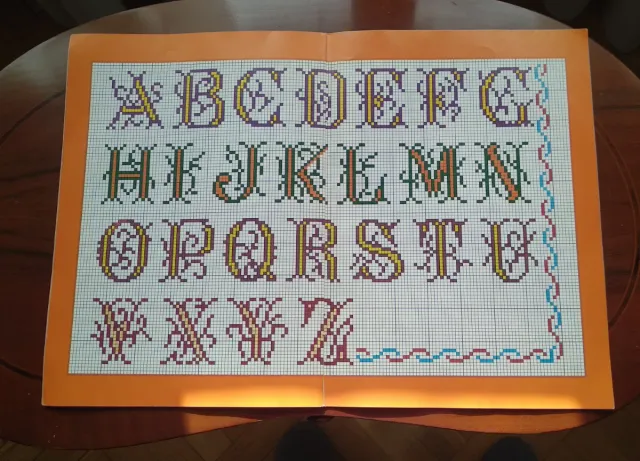 A B C D E F G
H I J K L M N
O P Q R S T U
V X Y Z